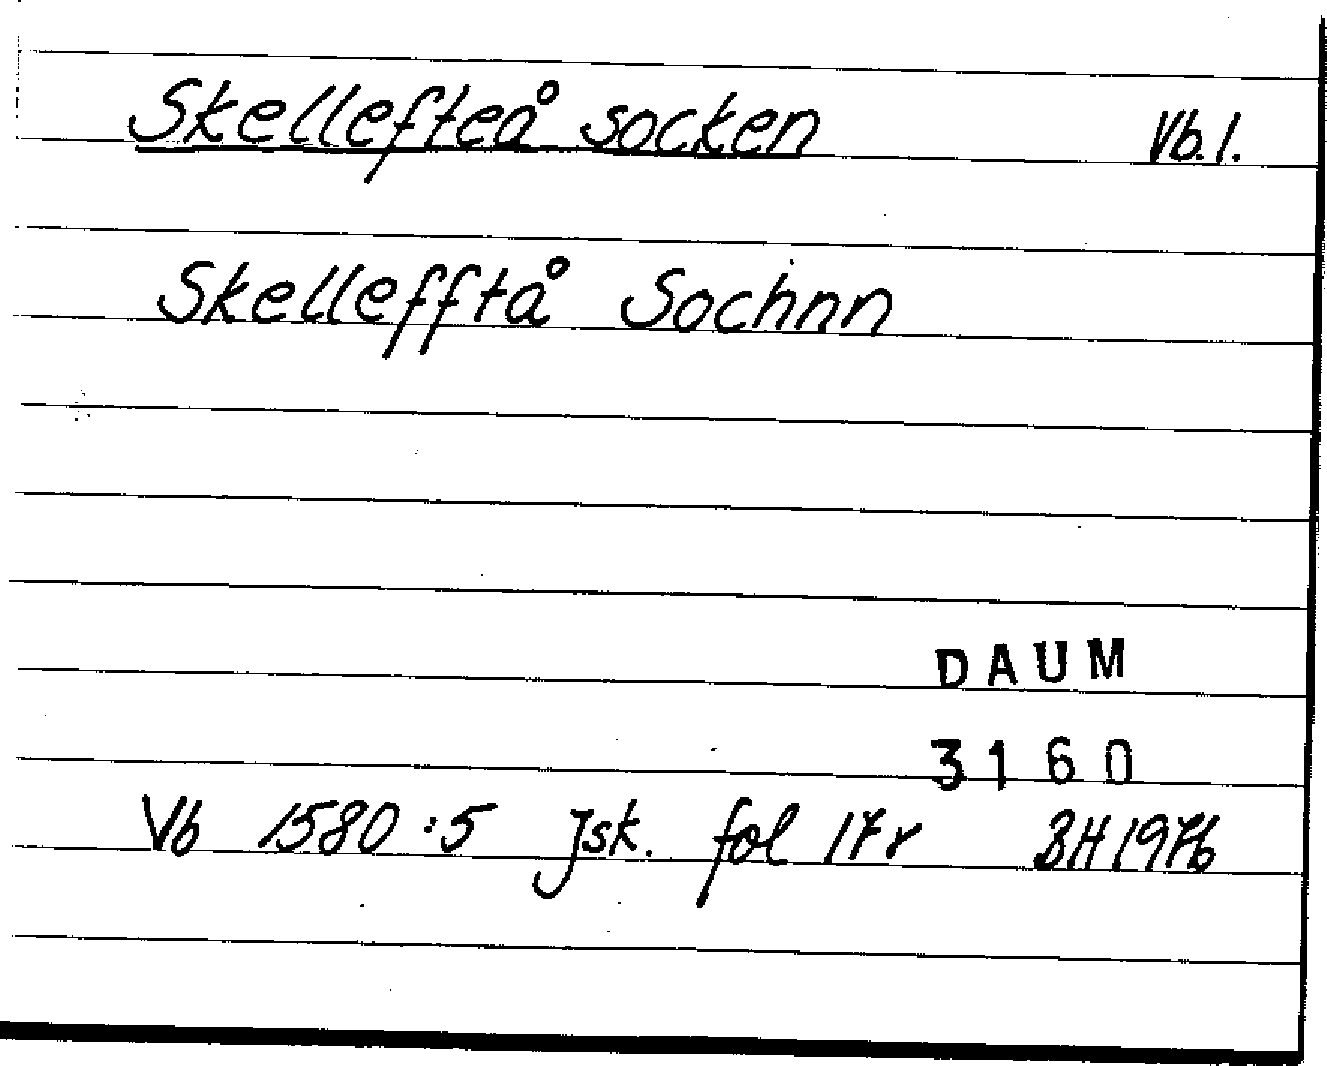 Skellefteå socken Vb. l.
Skellefftå Sochnn
DAUM
3160
Vb 1580:5 Jsk. fol 17r BH 1976